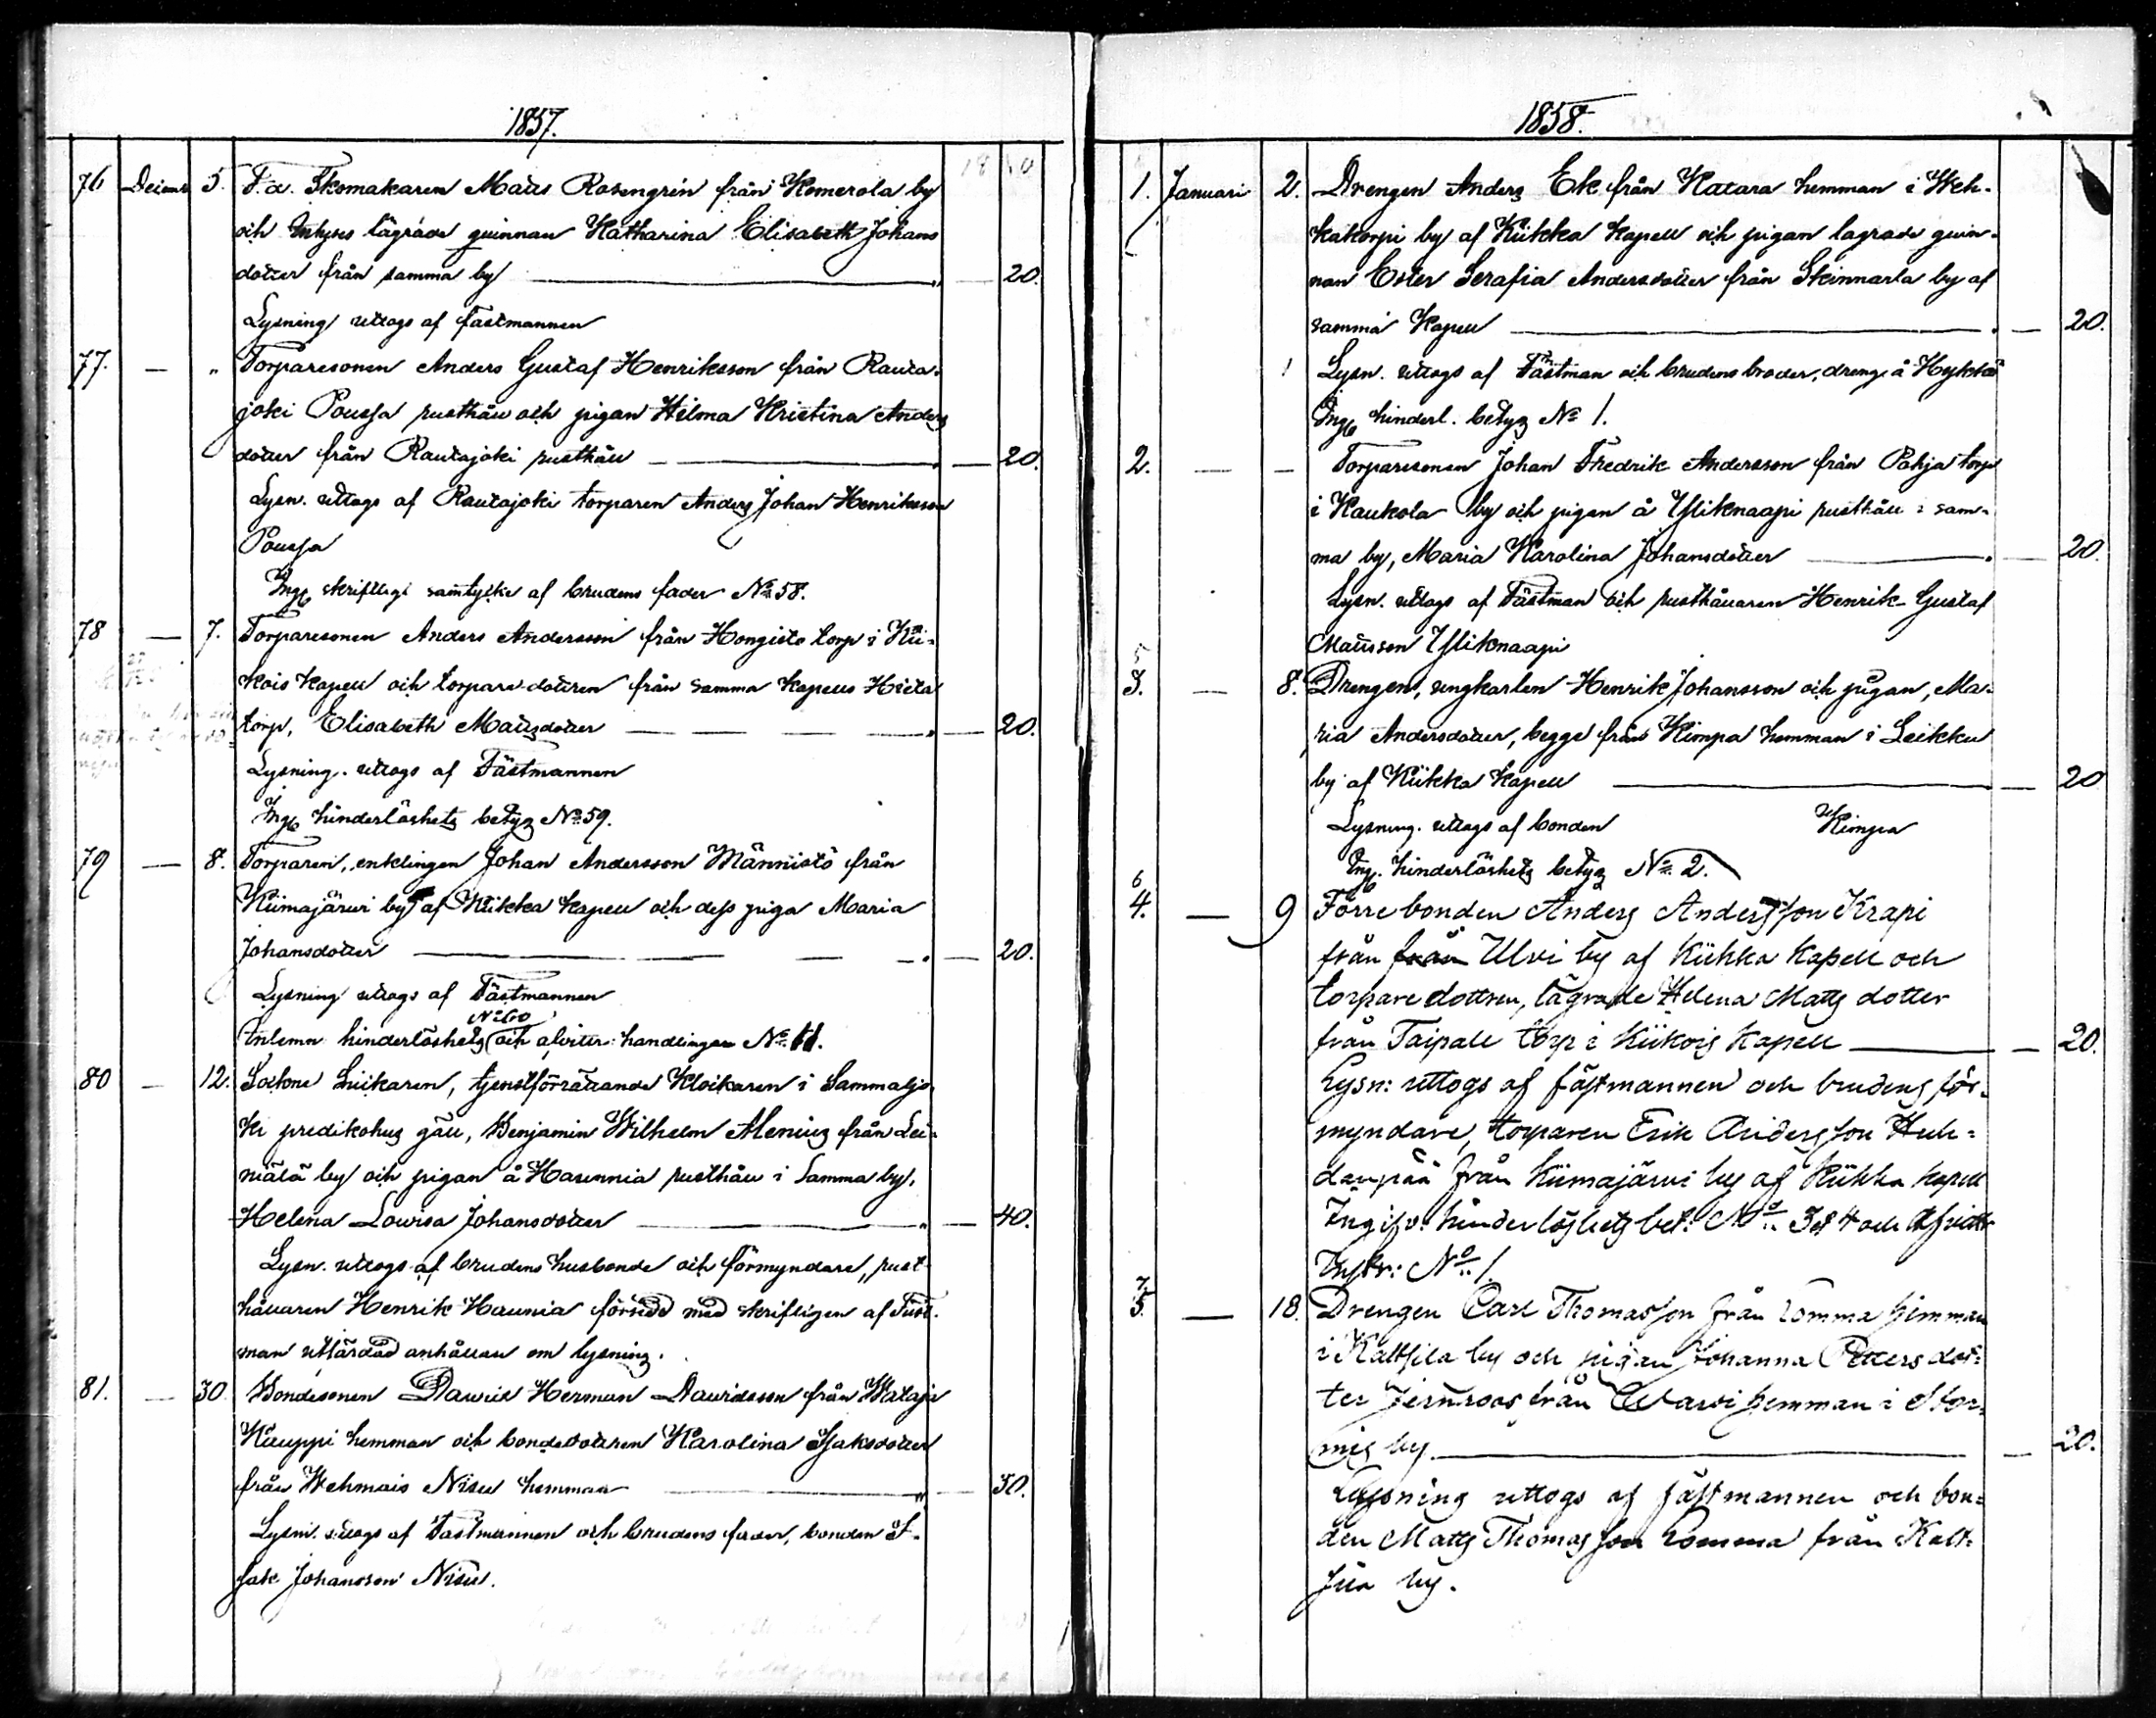 1857.
76 Decemr 5. F.a. Skomakaren Matts Rosengrén från Kemerola by
och Inhyses lägrade qvinnan Katharina Elisabeth Johans
dotter från samma by — 20.
Lysning uttogs af Fästmannen
77. — " Torparesonen Anders Gustaf Henriksson från Rauta-
joki Poussa rusthåll och pigan Hilma Kristina Anders
dotter från Rautajoki rusthåll — 20.
Lysn. uttogs af Rautajoki torparen Anders Johan Henriksson
Poussa
Ingb skriftligt samtycke af brudens fader No 58.
78 — 7. Torparesonen Anders Andersson från Hongisto torp i Kii-
kois Kapell och torparedottren från samma Kapells Hieta
torp, Elisabeth Mattsdotter — 20.
Lysning. uttogs af Fästmannen
Ingb hinderlöshets betyg No 59.
79 — 8. Torparen, enklingen Johan Andersson Männistö från
Kiimajärvi by af Kiikka kapell och dess piga Maria
Johansdotter — 20.
Lysning uttogs af Fästmannen
No 60
Inlemn hinderlöshets och afvittr: handlingar No 61.
80 — 12. Sockne Snickaren, tjenstförrättande Klockaren i Sammaljo
ki predikohus gäll, Benjamin Wilhelm Alenius från Lei-
nälä by och pigan å Haunia rusthåll i Samma by,
Helena Lowisa Johansdotter — 40.
Lysn. uttogs af brudens husbonde och förmyndare, rust-
hållaren Henrik Haunia försedd med skriftligen af Fäst-
man utfärdad anhållan om lysning.
81. — 30. Bondesonen Dawid Herman Davidsson från Wataja
Kauppi hemman och bondedottren Karolina Isaksdotter
från Wehmais Nisu hemman — 30.
Lysn. uttogs af Fästmannen och brudens fader, bonden I-
sak Johansson Nisu.
1858.
1. Januari 2. Drengen Anders Ek från Katara hemman i Weh-
kakorpi by af Kiikka Kapell och pigan lägrade qvin-
nan Ester Serafia Andersdotter från Stinnarla by af
samma Kapell — 20.
Lysn. uttogs af Fästman och brudens broder, dreng å
Ingb hinderl. betyg No 1.
2. — — Torparesonen Johan Fredrik Andersson från Pohja torp
i Kaukola by och pigan å Yliknaapi rusthåll i sam-
ma by, Maria Karolina Johansdotter — 20.
Lysn. uttogs af Fästman och rusthållaren Henrik Gustaf
Mattsson Yliknaapi
5
3. — 8. Drengen, ungkarlen Henrik Johansson och pigan, Ma-
ria Andersdotter, begge från Kimpa hemman i Leikku
by af Kiikka Kapell — 20
Lysning. uttogs af bonden Kimpa
Ingb. hinderlöshets betyg No 2.
6
4. — 9 Förre bonden Anders Andersson Krapi
från från Ulvi by af Kiikka Kapell och
torpare dottren, lägrade Helena Matts dotter
från Taipale torp i Kiikois Kapell — 20.
Lysn: uttogs af fästmannen och brudens för-
myndare, torparen Erik Andersson Huh-
danpää från Kiimajärvi by af Kiikka Kapell
Ingifv: hinderlöshets bet: No 3 & 4 och Afvittr
Instr: No 1.
7
5. — 18. Drengen Carl Thomasson från Lomma hemman
i Kaltsila by och pigan Johanna Petters dot-
ter Jernroos från Warvi hemman i Stor-
mis by — 20.
Lysning uttogs af fästmannen och bon-
den Matts Thomasson Lomma från Kalt-
sila by.